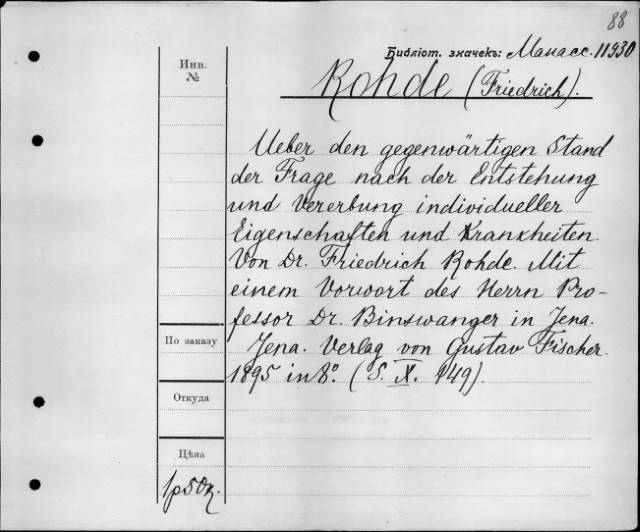 88
Библіот. значекъ: Манасс. 11930
Инв.
№
Rohde (Friedrich).
Ueber den gegenwärtigen Stand
der Frage nach der Entstehung
und Vererbung individueller
Eigenschaften und Kranxheiten.
Von Dr. Friedrich Rohde. Mit
einem Vorwort des Herrn Pro-
fessor Dr. Binswanger in Jena.
Jena. Verlag von Gustav Fischer.
1895 in 8º. (S. X. 149).
По заказу
Откуда
Цѣна
1р50к.